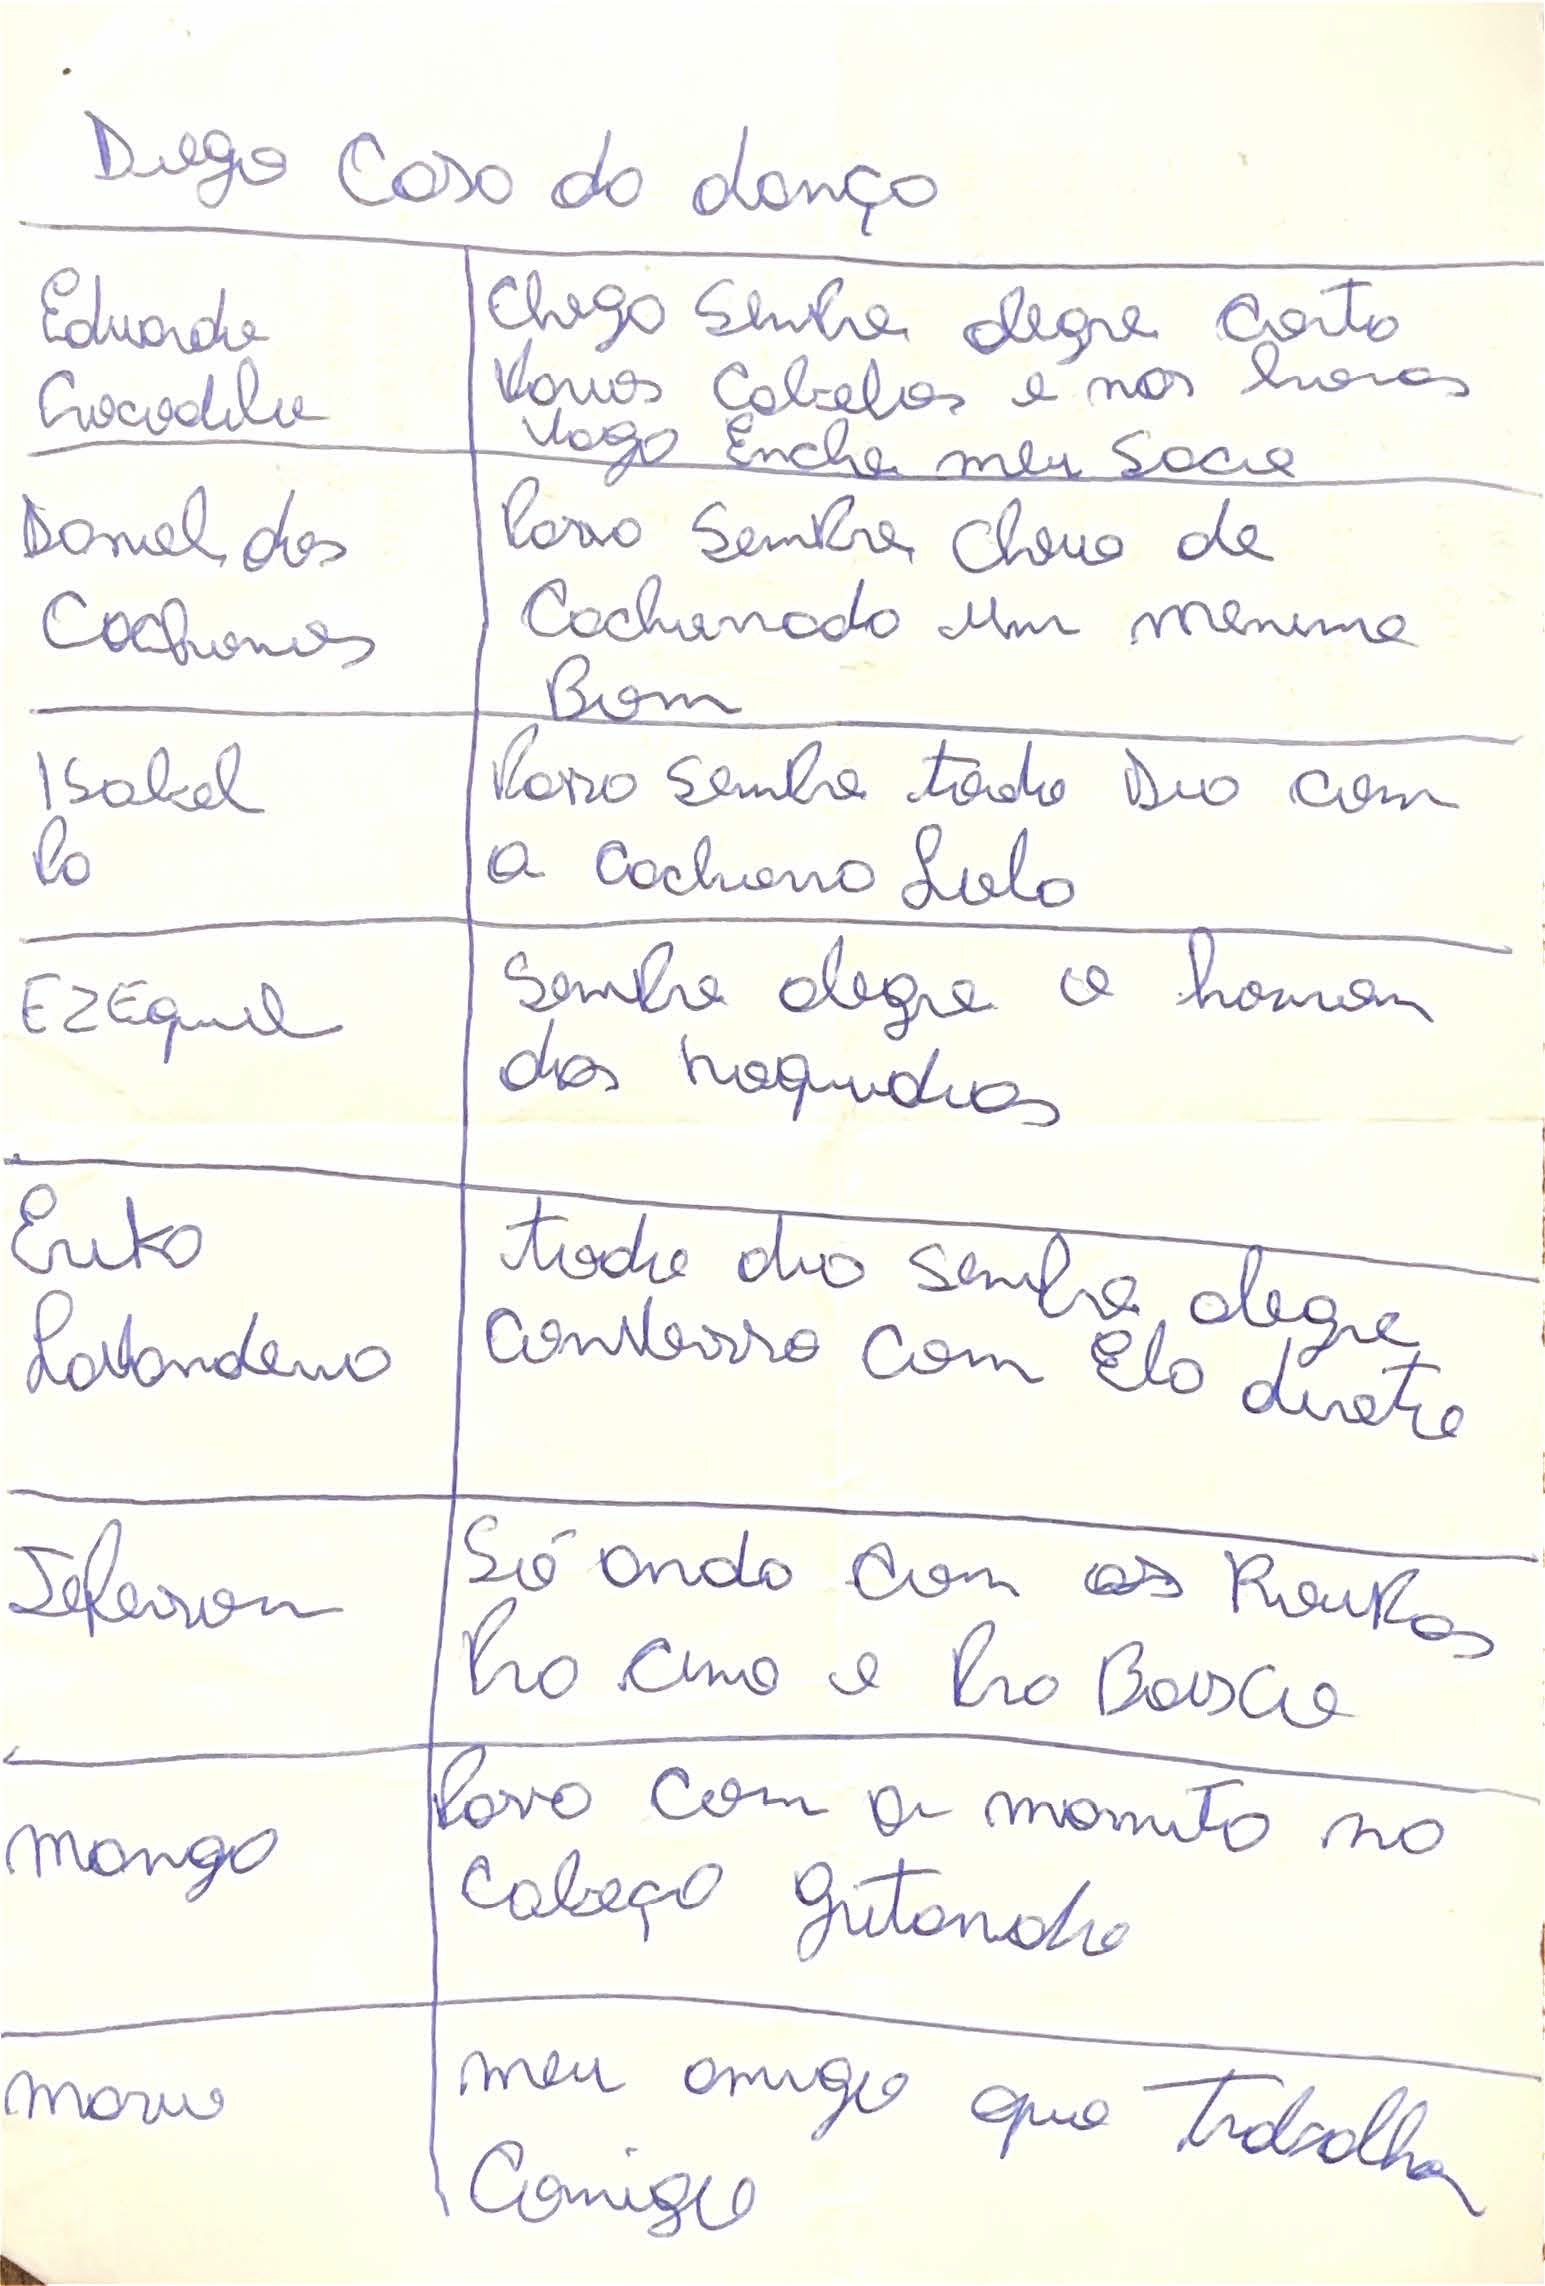 Diego Casa da dança
Eduardo
Crocodilo
Chega sempre alegre corta
varios cabelos e nas horas
vaga Enche meu saco
Daniel dos
Cachorros
Passa sempre cheio de
Cachorrada um menino
Bom
ISabel
Pa
Passa sempre todo Dia com
a cachorra Lula
EZEquiel
Sempre alegre o homem
das raquidias
Erika
Lavanderia
todo dia sempre alegre
conversa com Ela direto
Jeferson
Só anda com as Roupas
Pra cima e Pra Baixo
manga
Passa com a marmita na
cabeça gritando
mario
meu amigo que trabalha
Comigo